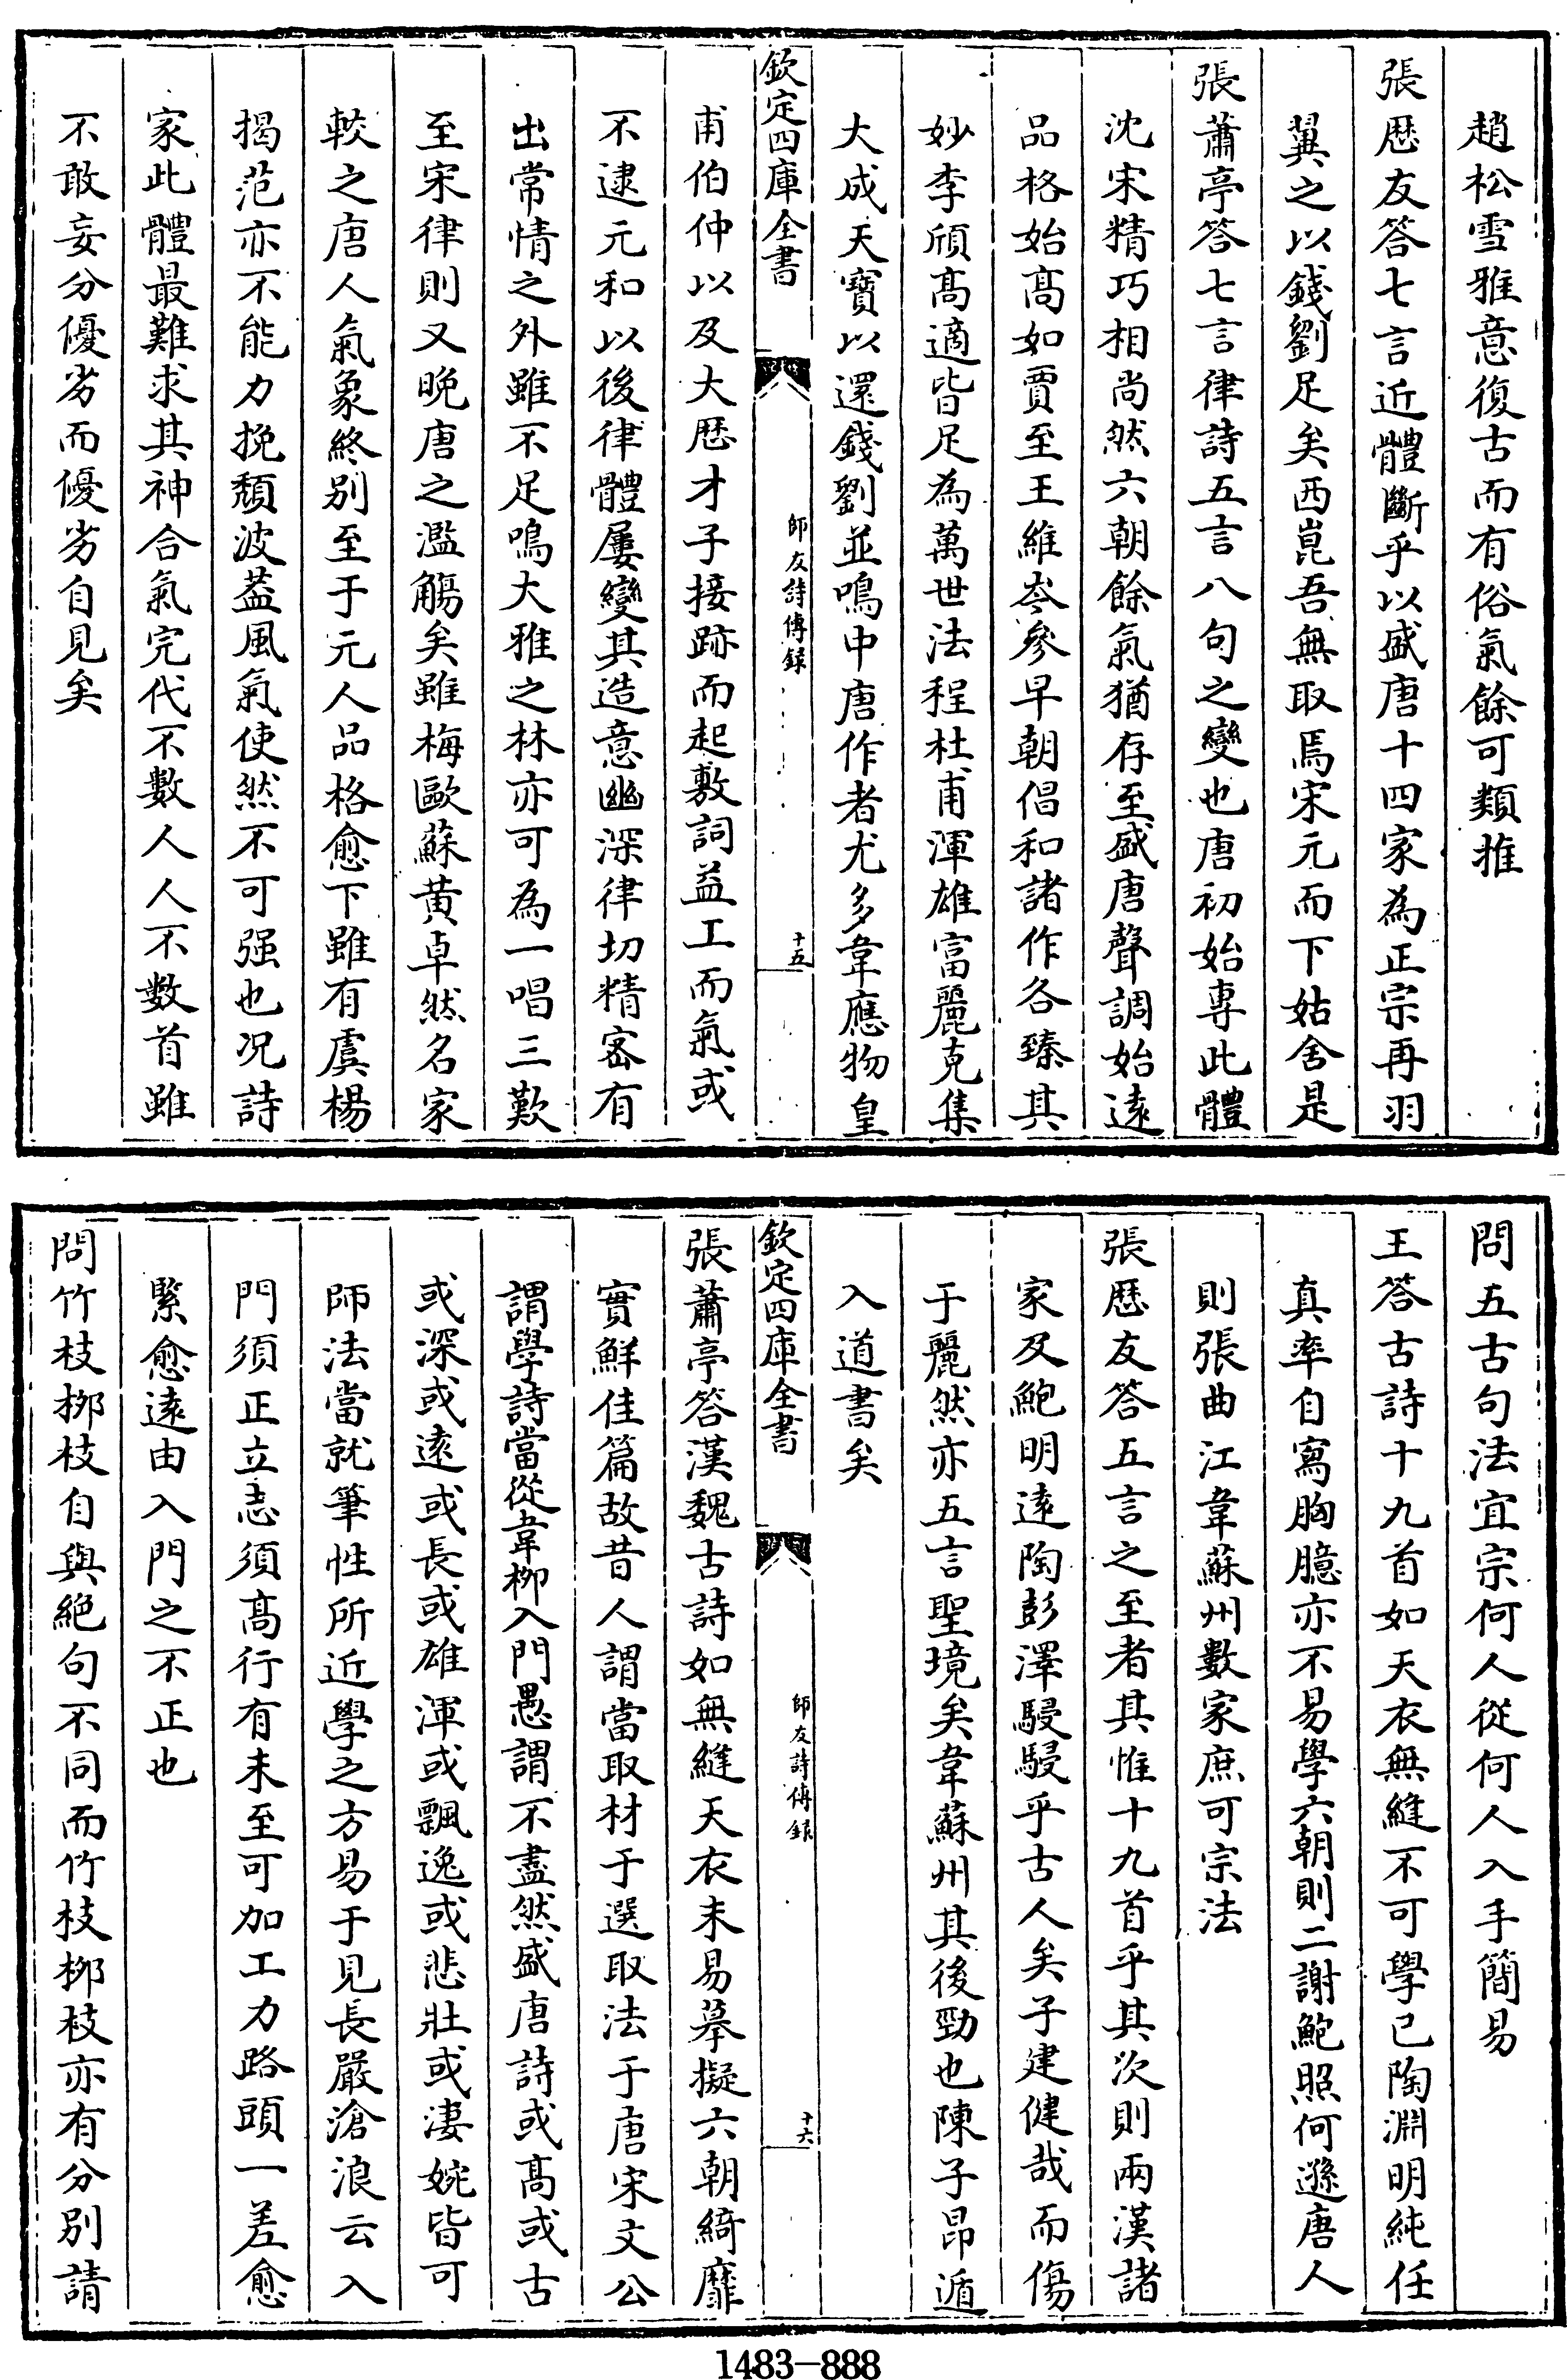 趙松雪雅意復古而有俗氣餘可類推
張厯友答七言近體斷乎以盛唐十四家為正宗再羽
翼之以錢劉足矣西崑吾無取焉宋元而下姑舍是
張蕭亭答七言律詩五言八句之變也唐初始專此體
沈宋精巧相尚然六朝餘氣猶存至盛唐聲調始遠
品格始髙如賈至王維岑參早朝倡和諸作各臻其
妙李頎髙適皆足為萬世法程杜甫渾雄富麗克集
大成天寶以還錢劉並鳴中唐作者尤多韋應物皇
欽定四庫全書
師友詩傳録
十五
甫伯仲以及大厯才子接跡而起敷詞益工而氣或
不逮元和以後律體屢變其造意幽深律切精宻有
出常情之外雖不足鳴大雅之林亦可為一唱三歎
至宋律則又晚唐之濫觴矣雖梅歐蘇黄卓然名家
較之唐人氣象終别至于元人品格愈下雖有虞楊
揭范亦不能力挽頽波葢風氣使然不可强也况詩
家此體最難求其神合氣完代不數人人不數首雖
不敢妄分優劣而優劣自見矣
問五古句法宜宗何人從何人入手簡易
王答古詩十九首如天衣無縫不可學已陶淵明純任
真率自寫胸臆亦不易學六朝則二謝鮑照何遜唐人
則張曲江韋蘇州數家庶可宗法
張厯友答五言之至者其惟十九首乎其次則兩漢諸
家及鮑明遠陶彭澤駸駸乎古人矣子建健哉而傷
于麗然亦五言聖境矣韋蘇州其後勁也陳子昂遁
入道書矣
欽定四庫全書
師友詩傳録
十六
張蕭亭答漢魏古詩如無縫天衣未易摹擬六朝綺靡
實鮮佳篇故昔人謂當取材于選取法于唐宋文公
謂學詩當從韋栁入門愚謂不盡然盛唐詩或髙或古
或深或遠或長或雄渾或飄逸或悲壯或淒婉皆可
師法當就筆性所近學之方易于見長嚴滄浪云入
門須正立志須髙行有未至可加工力路頭一差愈
騖愈遠由入門之不正也
問竹枝栁枝自與絶句不同而竹枝栁枝亦有分别請
1483-888